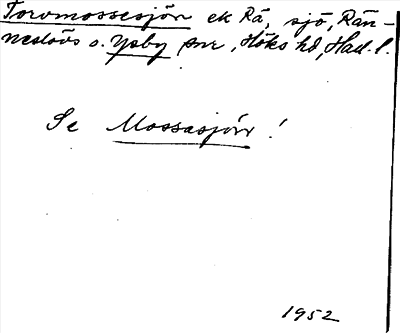 Torvmossesjön ek Rä, sjö, Rän-
neslövs o. Ysby snr, Höks hd, Hall. l.
Se Mossasjön !
1952